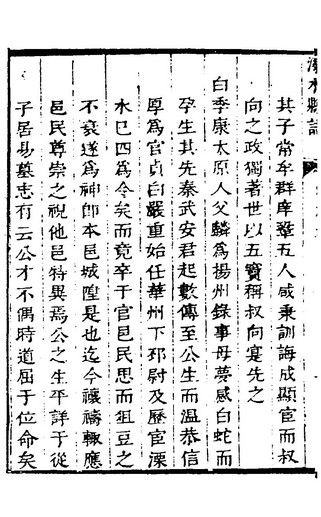 溧水縣誌
其子常牟群庠鞏五人咸秉訓誨成顯宦而叔
向之政獨著世以五竇稱叔向寔先之
白季康太原人父麟爲揚州錄事母夢感白蛇而
孕生其先秦武安君起數傳至公生而温恭信
厚爲官貞白嚴重始任華州下邳尉及歷宦溧
水巳四爲令矣而竟卒于官邑民思而俎豆之
不衰遂爲神卽本邑城隍是也迄今禳禱輒應
邑民尊崇之視他邑特異焉公之生平詳于從
子居易墓志有云公才不偶時道屈于位命矣